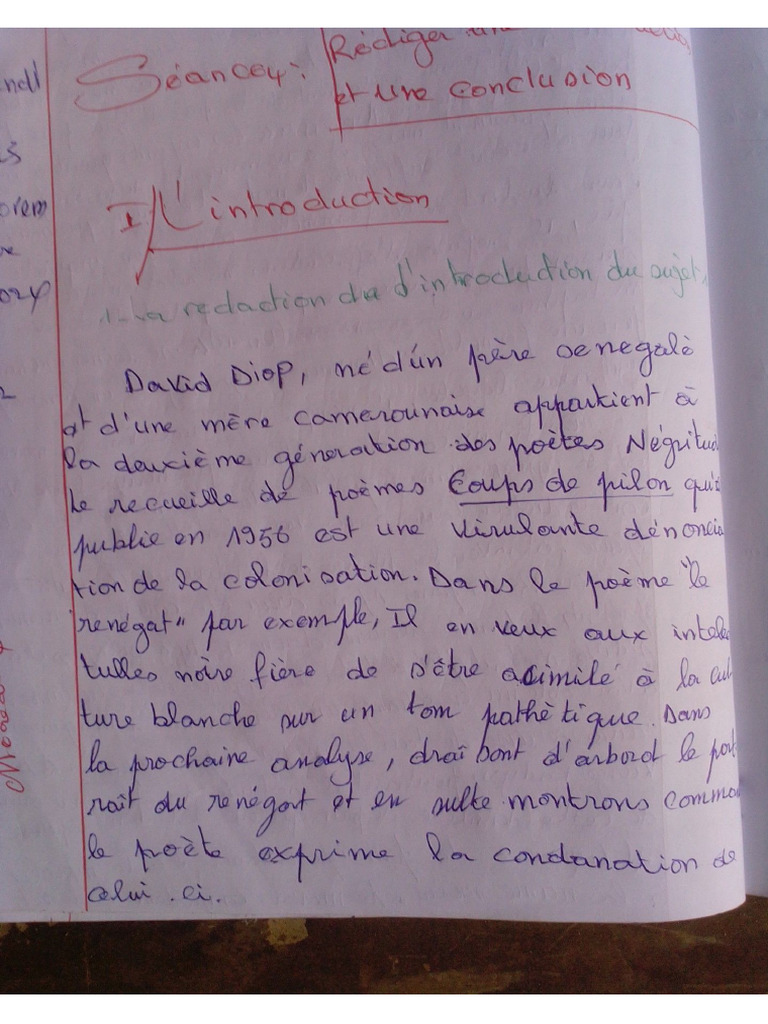 Séance4:
Rédiger une
et une conclusion
I/ L'introduction
1-La redaction de d'introduction du sujet.
David Diop, né d'ún père senegalè
et d'une mère camerounaise appartient à
la deuxième géneration des poètes Négritud
le recueille de poèmes Coups de pilon qu'i
publie en 1956 est une virulante dénoncia
tion de la colonisation. Dans le poème "le
renégat" par exemple, Il en veux aux intelec
tuelles noire fière de s'être acimilé à la cul
ture blanche sur un tom pathètique. Dans
la prochaine analyse, draîbont d'arbord le port
rait du renégat et en suite montrons comme
le poète exprime la condanation de
celui.ci.